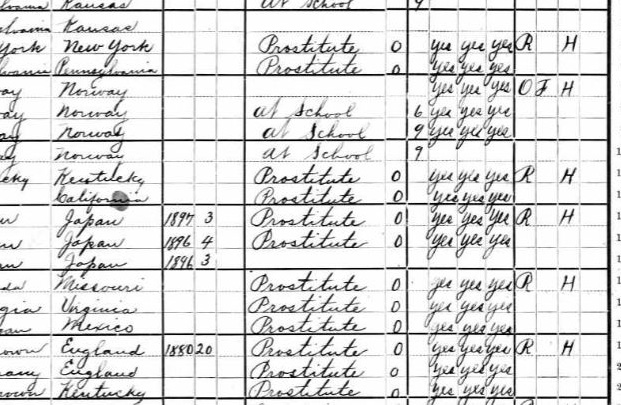 Kansas at School 9
Kansas
York New York Prostitute 0 yes yes yes R H
Pennsylvania Prostitute 0 yes yes yes
Norway yes yes yes O F H
Norway at School 6 yes yes yes
Norway at School 9 yes yes yes
Norway at School 9
Kentucky Prostitute 0 yes yes yes R H
California Prostitute 0 yes yes yes
Japan 1897 3 Prostitute 0 yes yes yes R H
Japan 1896 4 Prostitute 0 yes yes yes
Japan 1896 3
Missouri Prostitute 0 yes yes yes R H
Virginia Prostitute 0 yes yes yes
Mexico Prostitute 0 yes yes yes
England 1880 20 Prostitute 0 yes yes yes R H
England Prostitute 0 yes yes yes
Kentucky Prostitute 0 yes yes yes